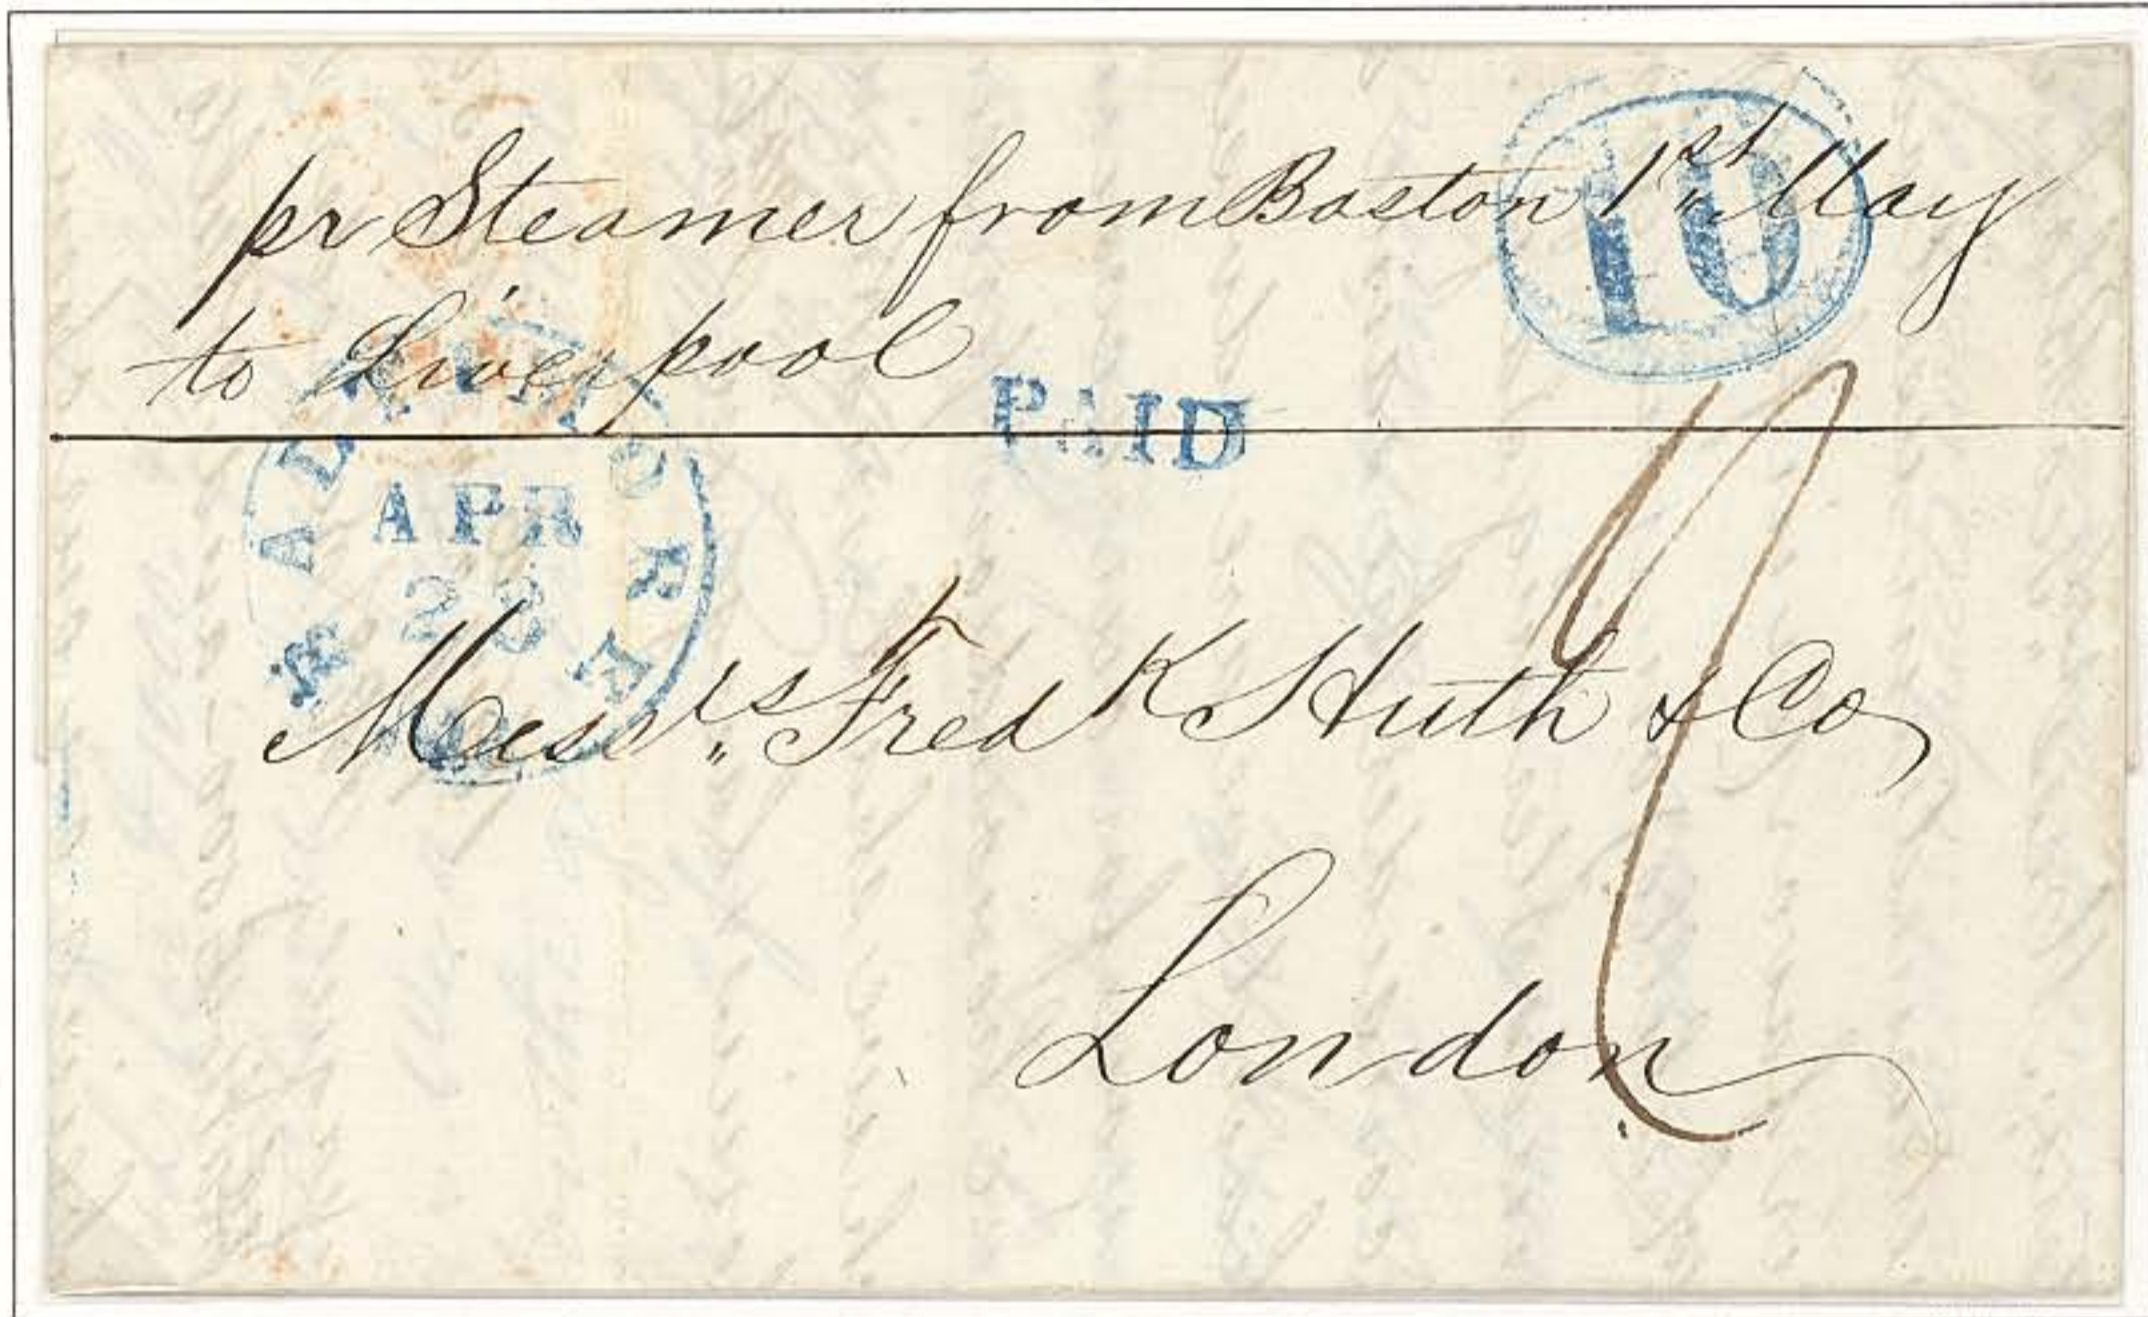 pr Steamer from Boston 1st May
10
to Liverpool
PAID
BALTIMORE
APR
28
Md
Messrs. Fredk Huth & Co
London